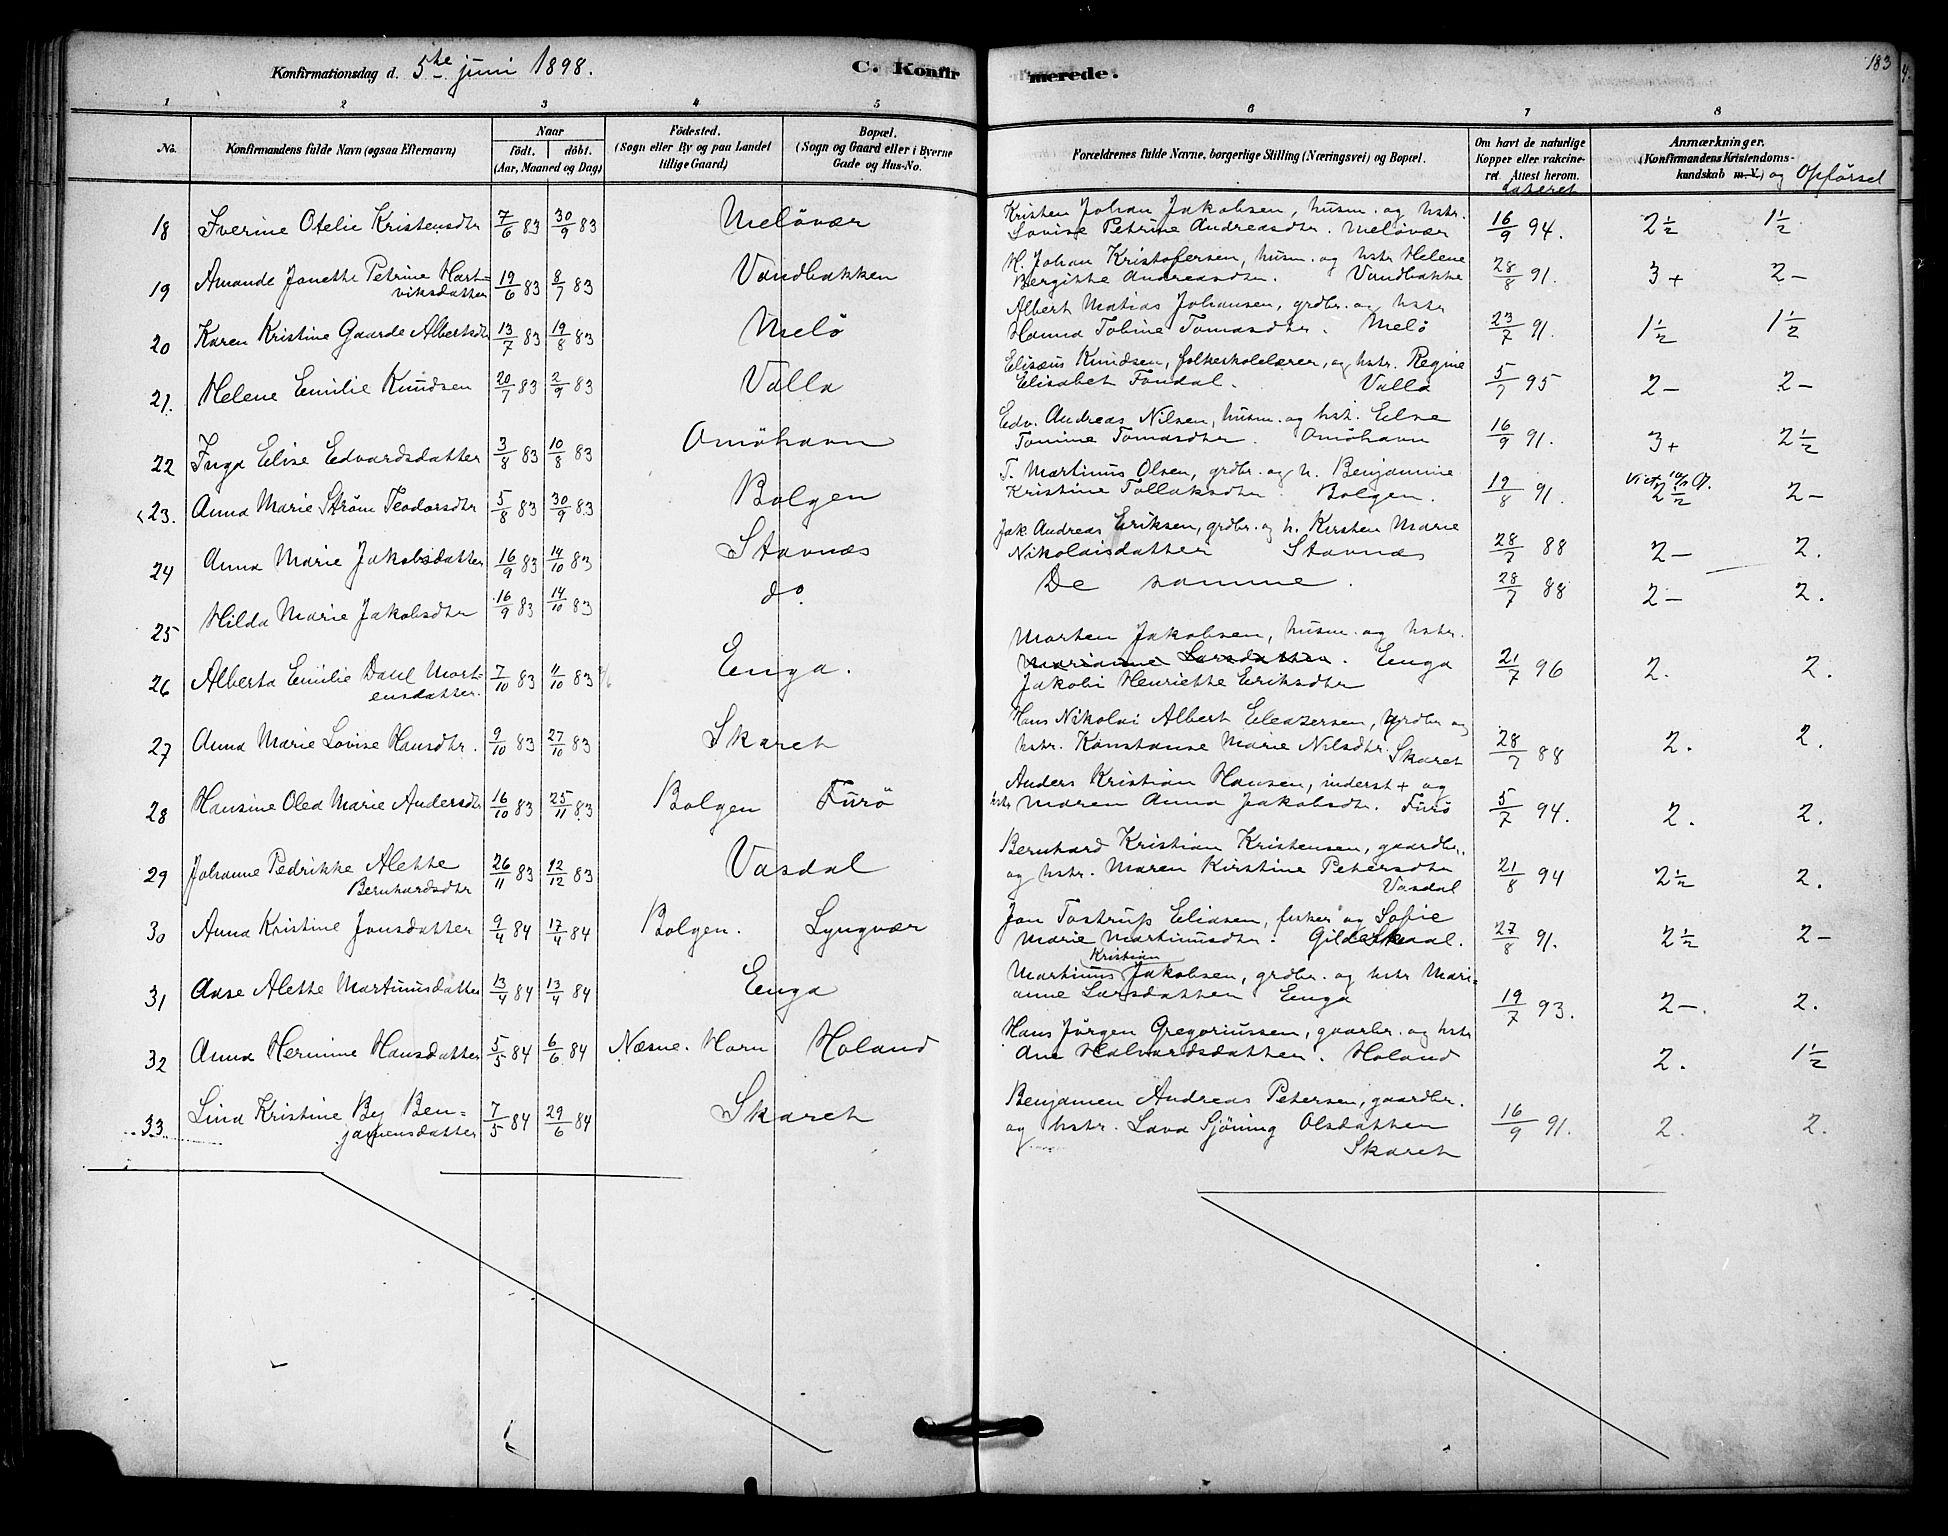 Konfirmationsdag d. 5te juni 1898.
C. Konfirmerede.
183
1 2 3 4 5 6 7 8
No.
Konfirmandens fulde Navn (ogsaa Efternavn)
Naar
födt. döbt.
(Aar, Maaned og Dag)
Födested.
(Sogn eller By og paa Landet
tillige Gaard)
Bopæl.
(Sogn og Gaard eller i Byerne
Gade og Hus-No.
Forældrenes fulde Navne, borgerlige Stilling (Næringsvei) og Bopæl.
Om havt de naturlige
Kopper eller vakcine-
ret. Attest herom.
dateret
Anmærkninger.
(Konfirmandens Kristendoms-
kundskab m.V.) og Opførsel
18 Iverine Otelie Kristensdtr 7/6 83 30/9 83 Meløvær Kristen Johan Jakobsen, husm. og hstr. 16/9 94. 2½ 1½
Lovise Petrine Andreasdtr. Meløvær
19 Amande Janette Petrine Hart= 19/6 83 8/7 83 Vandbakken H. Johan Kristofersen, husm. og hstr Helene 28/8 91. 3+ 2-
viksdatter Bergitte Andreasdtr. Vandbakke
20 Karen Kristine Gaarde Albertsdtr 13/7 83 19/8 83 Melö Albert Matias Johansen, grdbr. og hstr 23/7 91. 1½ 1½
Hanna Tobine Tomasdtr. Melö
21. Helene Emilie Knudsen 20/7 83 2/9 83 Valla Elisæus Knudsen, folkeskolelærer, og hstr. Regine 5/7 95 2- 2-
Elisabet Fondal. Valla
22 Inga Elise Edvardsdatter 3/8 83 10/8 83 Omöhavn Edv. Andreas Nilsen, husm. og hst. Else 16/9 91. 3+ 2½
Tomine Tomasdtr. Omöhavn
23. Anna Marie Strøm Teodorsdtr 5/8 83 30/9 83 Bolgen T. Martinus Olsen, grdbr. og h. Benjamine 19/8 91. 2½ 2-
Kristine Tollaksdtr. Bolgen.
24 Anna Marie Jakobsdatter 16/9 83 14/10 83 Stavnæs Jak. Andreas Eriksen, grdbr. og h. Kirsten Marie 28/7 88 2- 2.
Nikolaisdatter Stavnæs
25 Hilda Marie Jakobsdtr 16/9 83 14/10 83 do. De samme. 28/7 88 2- 2.
26 Alberta Emilie Dahl Mort= 7/10 83 11/10 83 Enga. Morten Jakobsen, husm. og hstr. 21/7 96 2. 2.
ensdatter. Marianne Larsdatter. Enga
Jakobi Henriette Eriksdtr
27 Anna Marie Lovise Hansdtr. 9/10 83 27/10 83 Skaret Hans Nikolai Albert Eleazersen, grdbr og 28/7 88 2. 2.
hstr. Konstanse Marie Nilsdtr. Skaret
28 Hansine Olea Marie Andersdtr 16/10 83 25/11 83 Bolgen Furö Anders Kristian Hansen, inderst + og 5/7 94. 2. 2.
hstr Maren Anna Jakobsdtr. Furö
29 Johanne Pedrikke Alette 26/11 83 12/12 83 Vasdal Bernhard Kristian Kristensen, gaardbr. 21/8 94 2½ 2.
Bernhardsdtr og hstr. Maren Kirstine Petersdtr
Vasdal
30 Anna Kristine Jonsdatter 9/4 84 17/4 84 Bolgen. Lyngvær Jon Tostrup Eliasen, fisker og Sofie 27/8 91. 2½ 2-
Marie Martinusdtr. Gildeskaal.
31 Aase Alette Martinusdatter 13/4 84 13/4 84 Enga Martinus Kristian Jakobsen, grdbr. og hstr Mari= 19/7 93. 2-. 2.
anne Larsdatter Enga
32 Anna Hermine Hansdatter 5/5 84 6/6 84 Næsne. Horn Holand Hans Jörgen Gregoriussen, gaarbr. og hstr 2. 1½
Ane Halvardsdatter. Holand
33 Lina Kristine By Ben= 7/5 84 29/6 84 Skaret Benjamen Andreas Petersen, gaardbr. 16/9 91. 2. 2.
jamensdatter og hstr. Lava Sjöning Olsdatter
Skaret